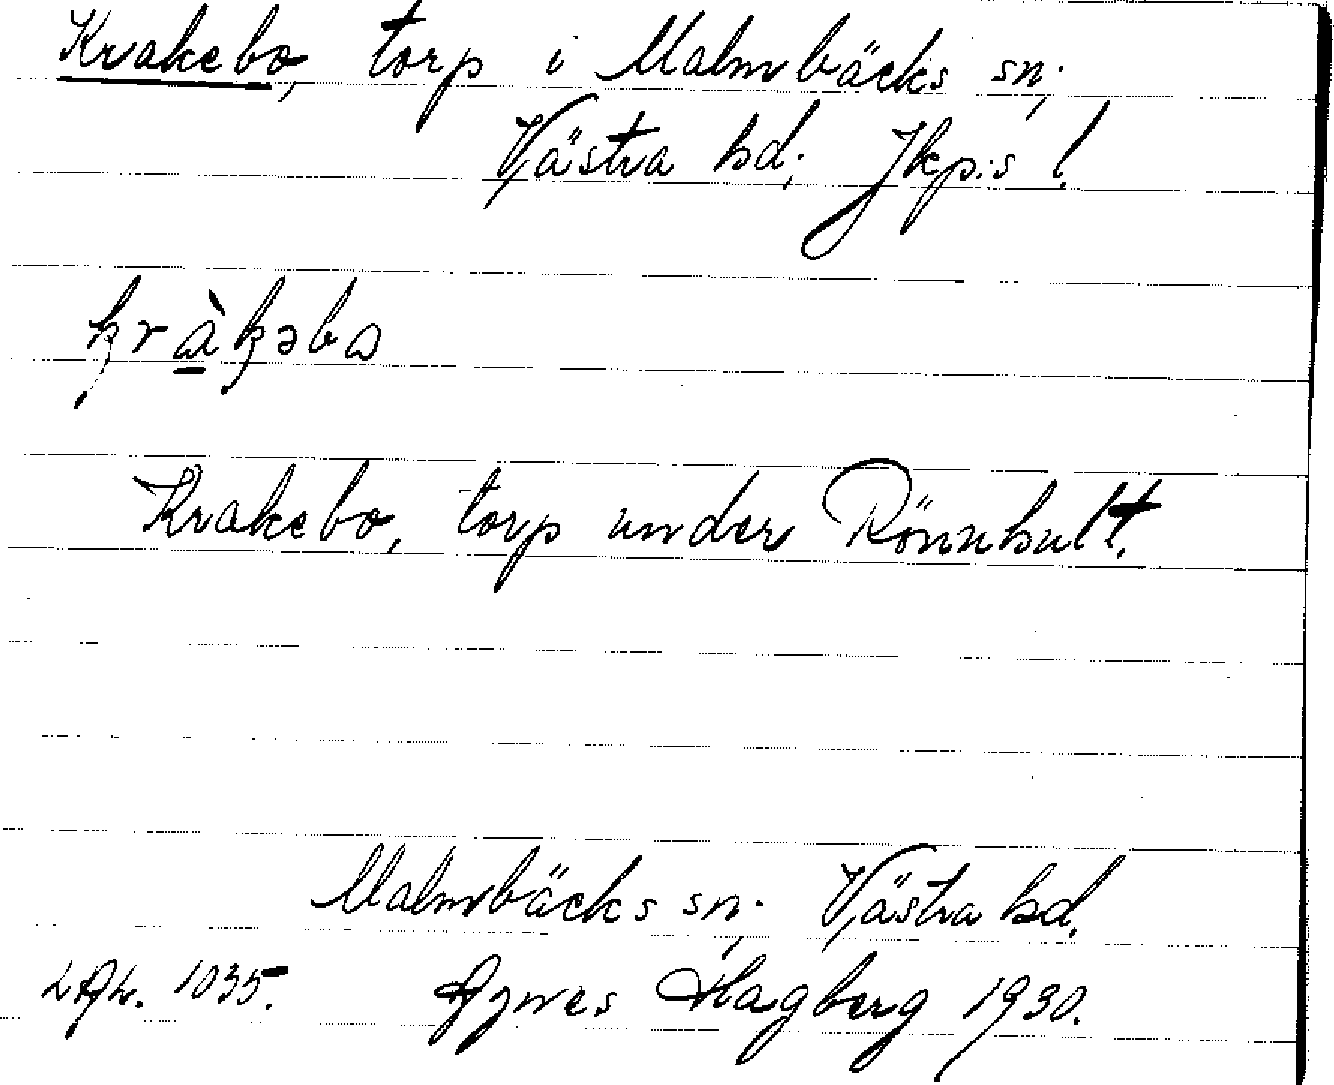 Krakebo, torp i Malmbäcks sn,
Västra hd, Jkp:s l.
kràkəbo
Krakebo, torp under Rönnhult.
Malmbäcks sn, Västra hd.
1035. Agnes Hagberg 1930.